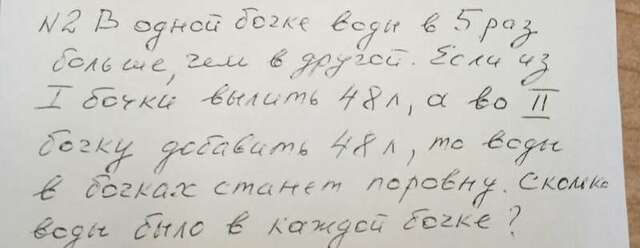 №2 В одной бочке воды в 5 раз
больше, чем в другой. Если из
I бочки вылить 48 л, а во II
бочку добавить 48 л, то воды
в бочках станет поровну. Сколько
воды было в каждой бочке?